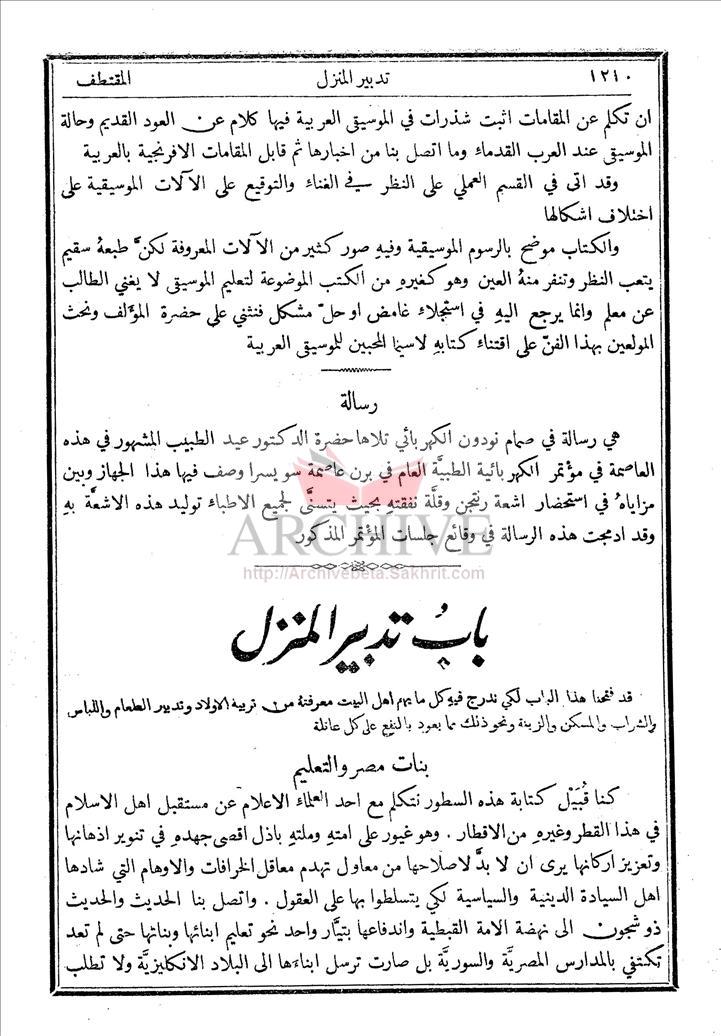 ١٢١٠ تدبير المنزل المقتطف
ان تكلم عن المقامات اثبت شذرات في الموسيقى العربية فيها كلام عن العود القديم وحالة
الموسيقى عند العرب القدماء وما اتصل بنا من اخبارها ثم قابل المقامات الافرنجية بالعربية
وقد اتى في القسم العملي على النظر في الغناء والتوقيع على الآلات الموسيقية على
اختلاف اشكالها
والكتاب موضح بالرسوم الموسيقية وفيهِ صور كثير من الآلات المعروفة لكنَّ طبعهُ سقيم
يتعب النظر وتنفر منهُ العين وهو كغيرهِ من الكتب الموضوعة لتعليم الموسيقى لا يغني الطالب
عن معلم وانما يرجع اليهِ في استجلاء غامض او حلّ مشكل فنثني على حضرة المؤلف ونحث
المولعين بهذا الفنّ على اقتناء كتابهِ لاسيما المحبين للموسيقى العربية
رسالة
هي رسالة في صمام نودون الكهربائي تلاها حضرة الدكتور عيد الطبيب المشهور في هذه
العاصمة في مؤتمر الكهربائية الطبيَّة العام في برن عاصمة سويسرا وصف فيها هذا الجهاز وبين
مزاياهُ في استحضار اشعة رنتجن وقلَّة نفقتهِ بحيث يتسنَّى لجميع الاطباء توليد هذه الاشعَّة بهِ
وقد ادمجت هذه الرسالة في وقائع جلسات المؤتمر المذكور
ARCHIVE
http://Archivebeta.Sakhrit.com
بابُ تدبير المنزل
قد فتحنا هذا الباب لكي ندرج فيهِ كل ما يهم اهل البيت معرفتهُ من تربية الاولاد وتدبير الطعام واللباس
والشراب والمسكن والزينة ونحو ذلك مما يعود بالنفع على كل عائلة
بنات مصر والتعليم
كنا قُبَيْل كتابة هذه السطور نتكلم مع احد العلماء الاعلام عن مستقبل اهل الاسلام
في هذا القطر وغيرهِ من الاقطار . وهو غيور على امتهِ وملتهِ باذل اقصى جهدهِ في تنوير اذهانها
وتعزيز اركانها يرى ان لا بدَّ لاصلاحها من معاول تهدم معاقل الخرافات والاوهام التي شادها
اهل السيادة الدينية والسياسية لكي يتسلطوا بها على العقول . واتصل بنا الحديث والحديث
ذو شجون الى نهضة الامة القبطية واندفاعها بتيَّار واحد نحو تعليم ابنائها وبناتها حتى لم تعد
تكتفي بالمدارس المصريَّة والسوريَّة بل صارت ترسل ابناءها الى البلاد الانكليزيَّة ولا تطلب